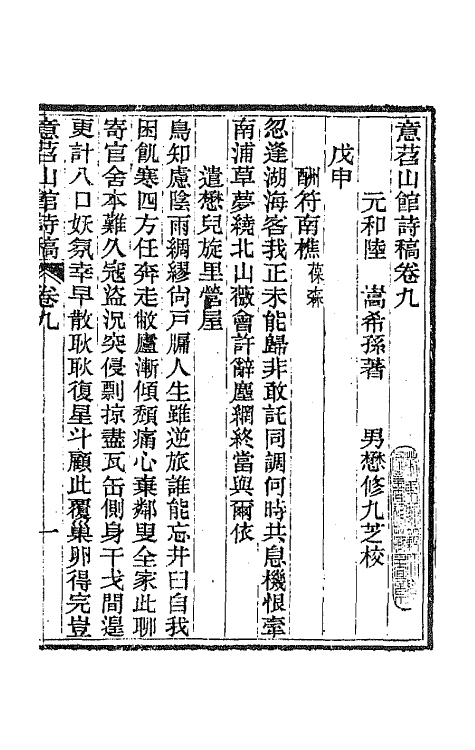 意苕山館詩稿卷九
元和陸　嵩希孫著　　男懋修九芝校
戊申
酬符南樵葆森
忽逢湖海客我正未能歸非敢託同調何時共息機恨牽
南浦草夢繞北山薇會許辭塵網終當與爾依
遣懋兒旋里營屋
鳥知慮陰雨綢繆向戸牖人生雖逆旅誰能忘井臼自我
困飢寒四方任奔走敝廬漸傾頹痛心棄鄰叟全家此聊
寄官舍本難久寇盜況突侵剽掠盡瓦缶側身干戈間遑
更計八口妖氛幸早散耿耿復星斗顧此覆巢卵得完豈
意苕山館詩稿　卷九　　一